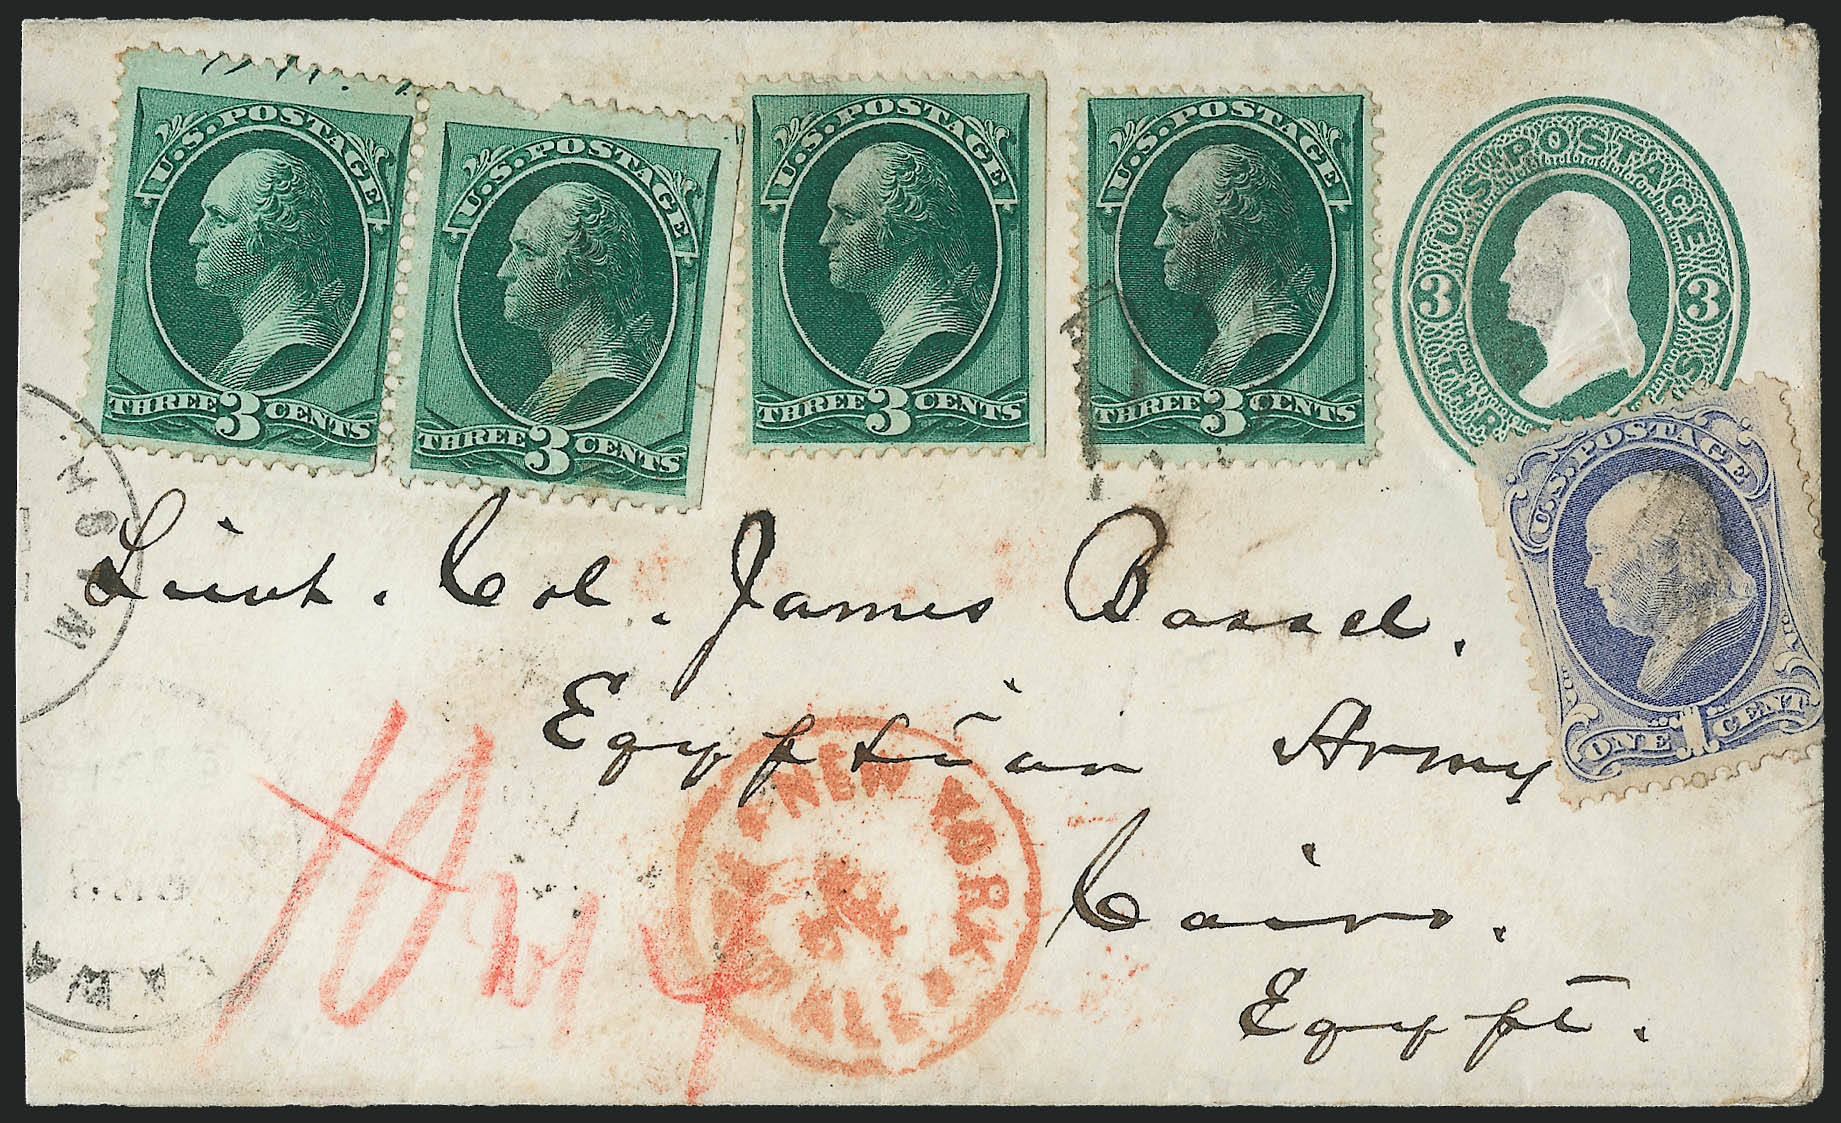 U.S. POSTAGE
THREE 3 CENTS
U.S. POSTAGE
THREE 3 CENTS
U.S. POSTAGE
THREE 3 CENTS
U.S. POSTAGE
THREE 3 CENTS
U.S. POSTAGE
3 3
U.S. POSTAGE
ONE 1 CENT
WASH.
Lieut. Col. James Bassel.
Egyptian Army
Cairo.
Egypt.
NEW YORK
ALL